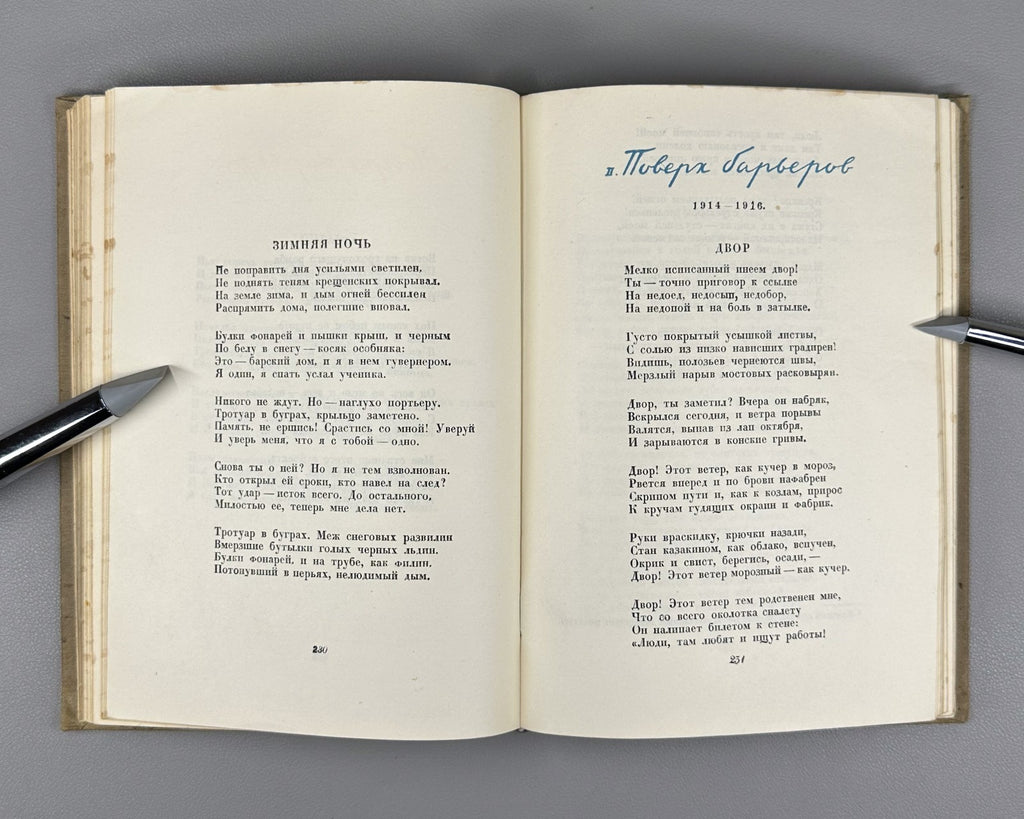 ЗИМНЯЯ НОЧЬ
Не поправить дня усильями светилен,
Не поднять теням крещенских покрывал.
На земле зима, и дым огней бессилен
Распрямить дома, полегшие вповал.
Булки фонарей и пышки крыш, и черным
По белу в снегу — косяк особняка:
Это — барский дом, и я в нем гувернером.
Я один, я спать услал ученика.
Никого не ждут. Но — наглухо портьеру.
Тротуар в буграх, крыльцо заметено.
Память, не ершись! Срастись со мной! Уверуй
И уверь меня, что я с тобой — одно.
Снова ты о ней? Но я не тем взволнован.
Кто открыл ей сроки, кто навел на след?
Тот удар — исток всего. До остального,
Милостью ее, теперь мне дела нет.
Тротуар в буграх. Меж снеговых развилин
Вмерзшие бутылки голых черных льдин.
Булки фонарей, и на трубе, как филин,
Потонувший в перьях, нелюдимый дым.
230
II. Поверх барьеров
1914—1916.
ДВОР
Мелко исписанный инеем двор!
Ты — точно приговор к ссылке
На недоед, недосып, недобор,
На недопой и на боль в затылке.
Густо покрытый усышкой листвы,
С солью из низко нависших градирен!
Видишь, полозьев чернеются швы,
Мерзлый нарыв мостовых расковырян.
Двор, ты заметил? Вчера он набряк,
Вскрылся сегодня, и ветра порывы
Валятся, выпав из лап октября,
И зарываются в конские гривы.
Двор! Этот ветер, как кучер в мороз,
Рвется вперед и по брови нафабрен
Скрипом пути и, как к козлам, прирос
К кручам гудящих окраин и фабрик.
Руки враскидку, крючки назади,
Стан казакином, как облако, вспучен,
Окрик и свист, берегись, осади, —
Двор! Этот ветер морозный — как кучер.
Двор! Этот ветер тем родственен мне,
Что со всего околотка сналету
Он налипает билетом к стене:
«Люди, там любят и ищут работы!
231